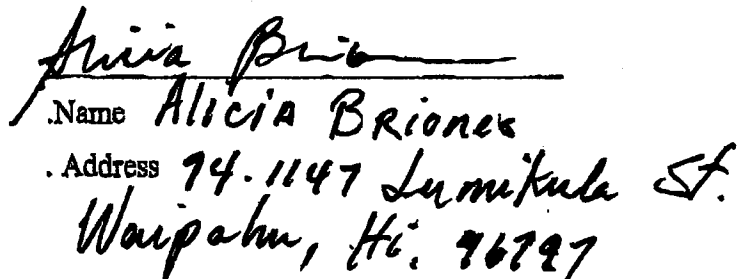 Alicia Brio
.Name Alicia Briones
. Address 94-1147 Lumikula St.
Waipahu, Hi. 96797